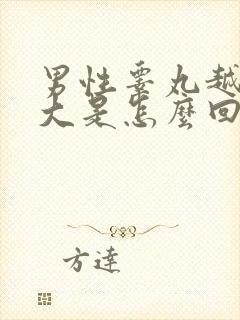 男性睾丸越
大是怎麼回
方達